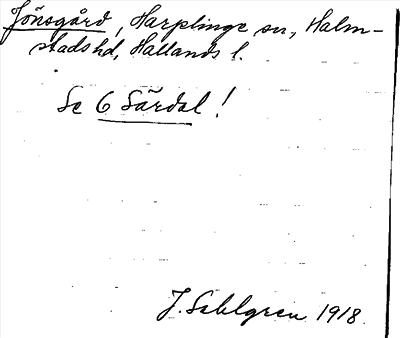 Jönsgård, Harplinge sn, Halm-
stads hd, Hallands l.
Se 6 Särdal!
J. Sahlgren 1918.